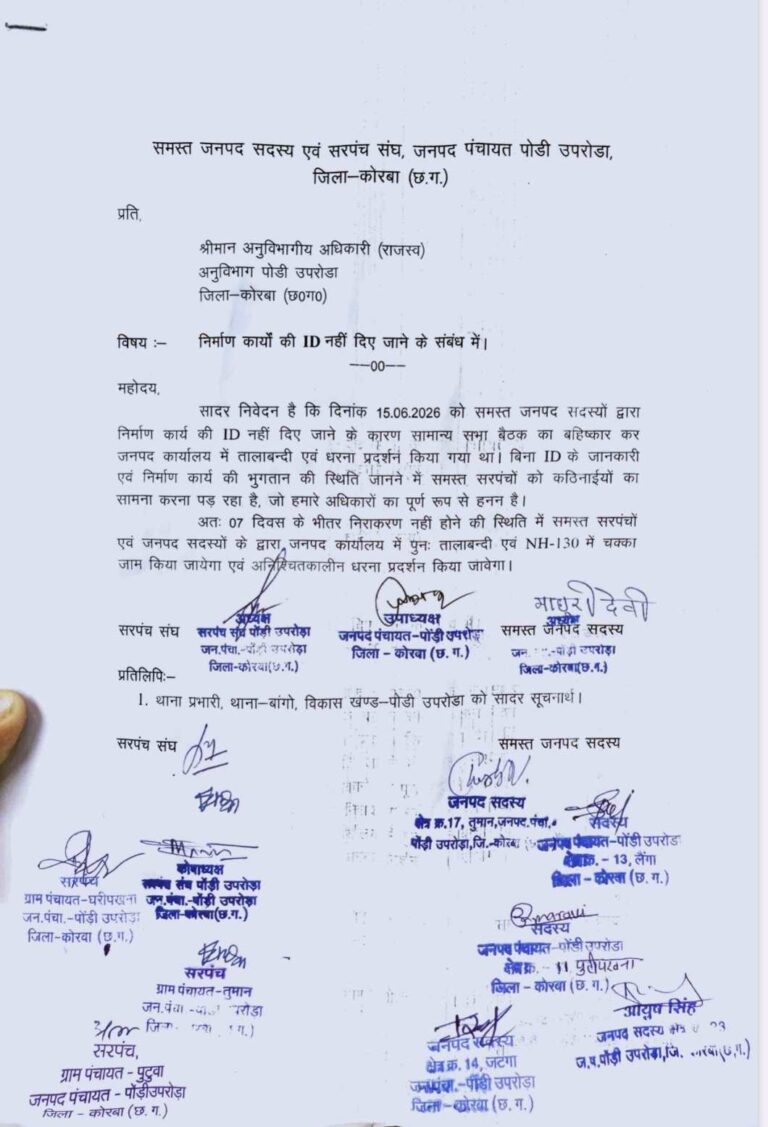 समस्त जनपद सदस्य एवं सरपंच संघ, जनपद पंचायत पोडी उपरोडा,
जिला–कोरबा (छ.ग.)
प्रति,
श्रीमान अनुविभागीय अधिकारी (राजस्व)
अनुविभाग पोडी उपरोडा
जिला–कोरबा (छ0ग0)
विषय :– निर्माण कार्यों की ID नहीं दिए जाने के संबंध में।
––00––
महोदय,
सादर निवेदन है कि दिनांक 15.06.2026 को समस्त जनपद सदस्यों द्वारा
निर्माण कार्य की ID नहीं दिए जाने के कारण सामान्य सभा बैठक का बहिष्कार कर
जनपद कार्यालय में तालाबन्दी एवं धरना प्रदर्शन किया गया था। बिना ID के जानकारी
एवं निर्माण कार्य की भुगतान की स्थिति जानने में समस्त सरपंचों को कठिनाईयों का
सामना करना पड़ रहा है, जो हमारे अधिकारों का पूर्ण रूप से हनन है।
अतः 07 दिवस के भीतर निराकरण नहीं होने की स्थिति में समस्त सरपंचों
एवं जनपद सदस्यों के द्वारा जनपद कार्यालय में पुनः तालाबन्दी एवं NH-130 में चक्का
जाम किया जायेगा एवं अनिश्चितकालीन धरना प्रदर्शन किया जावेगा।
माधुरी देवी
अध्यक्ष उपाध्यक्ष अध्यक्ष
सरपंच संघ सरपंच संघ पोंड़ी उपरोड़ा जनपद पंचायत-पोंडी उपरोड़ा समस्त जनपद सदस्य
जन.पंचा.-पोंडी उपरोड़ा जिला - कोरबा (छ. ग.) जन. -पोंडी उपरोड़ा
जिला-कोरबा(छ.ग.) जिला-कोरबा(छ.ग.)
प्रतिलिपिः–
1. थाना प्रभारी, थाना–बांगो, विकास खण्ड–पोडी उपरोडा को सादर सूचनार्थ।
सरपंच संघ समस्त जनपद सदस्य
जनपद सदस्य
क्षेत्र क्र.17, तुमान,जनपद.पंचा.
पोंड़ी उपरोड़ा,जि.-कोरबा
सदस्य
जनपद पंचायत-पोंडी उपरोडा
क्षेत्र क्र. - 13, लैंगा
जिला - कोरबा (छ. ग.)
सरपंच
ग्राम पंचायत-घरीपखना
जन.पंचा.-पोंड़ी उपरोड़ा
जिला-कोरबा (छ.ग.)
कोषाध्यक्ष
सरपंच संघ पोंड़ी उपरोड़ा
जन.पंचा.-पोंडी उपरोड़ा
जिला-कोरबा(छ.ग.)
सदस्य
जनपद पंचायत-पोंडी उपरोडा
क्षेत्र क्र. - 11
जिला - कोरबा (छ. ग.)
सरपंच
ग्राम पंचायत-तुमान
जन.पंचा.
आयुष सिंह
जनपद सदस्य
ज.प.पोंड़ी उपरोड़ा,जि. कोरबा(छ.ग.)
जनपद सदस्य
क्षेत्र क्र. 14, जटगा
जनपंचा.-पोंडी उपरोड़ा
जिला - कोरबा (छ. ग.)
सरपंच,
ग्राम पंचायत - पुटुवा
जनपद पंचायत - पोंड़ीउपरोड़ा
जिला - कोरबा (छ. ग.)